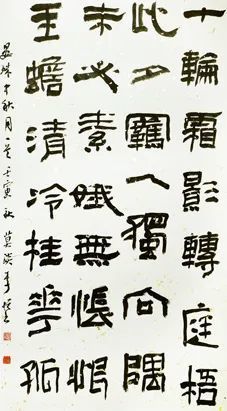 十輪霜影轉庭梧
此夕羈人獨向隅
未必素娥無悵恨
玉蟾清冷桂花孤
晏殊中秋月一首壬寅秋